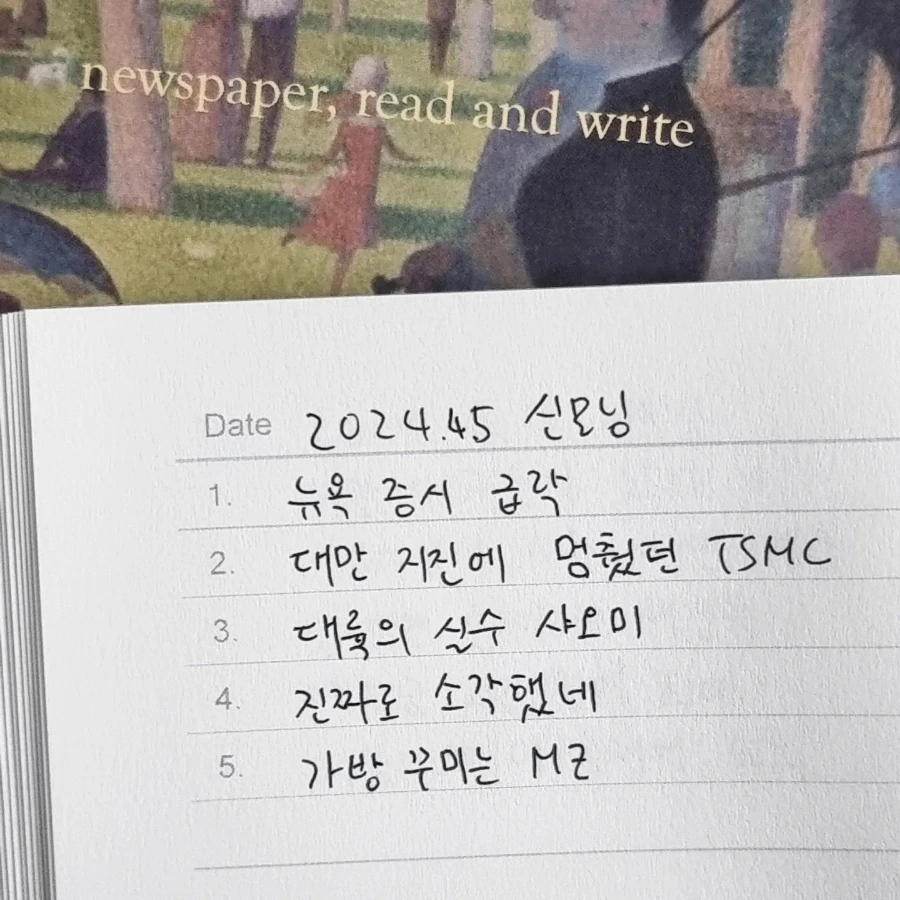 newspaper, read and write
Date 2024.45 신모닝
1. 뉴욕 증시 급락
2. 대만 지진에 멈췄던 TSMC
3. 대륙의 실수 샤오미
4. 진짜로 소각했네
5. 가방 꾸미는 MZ